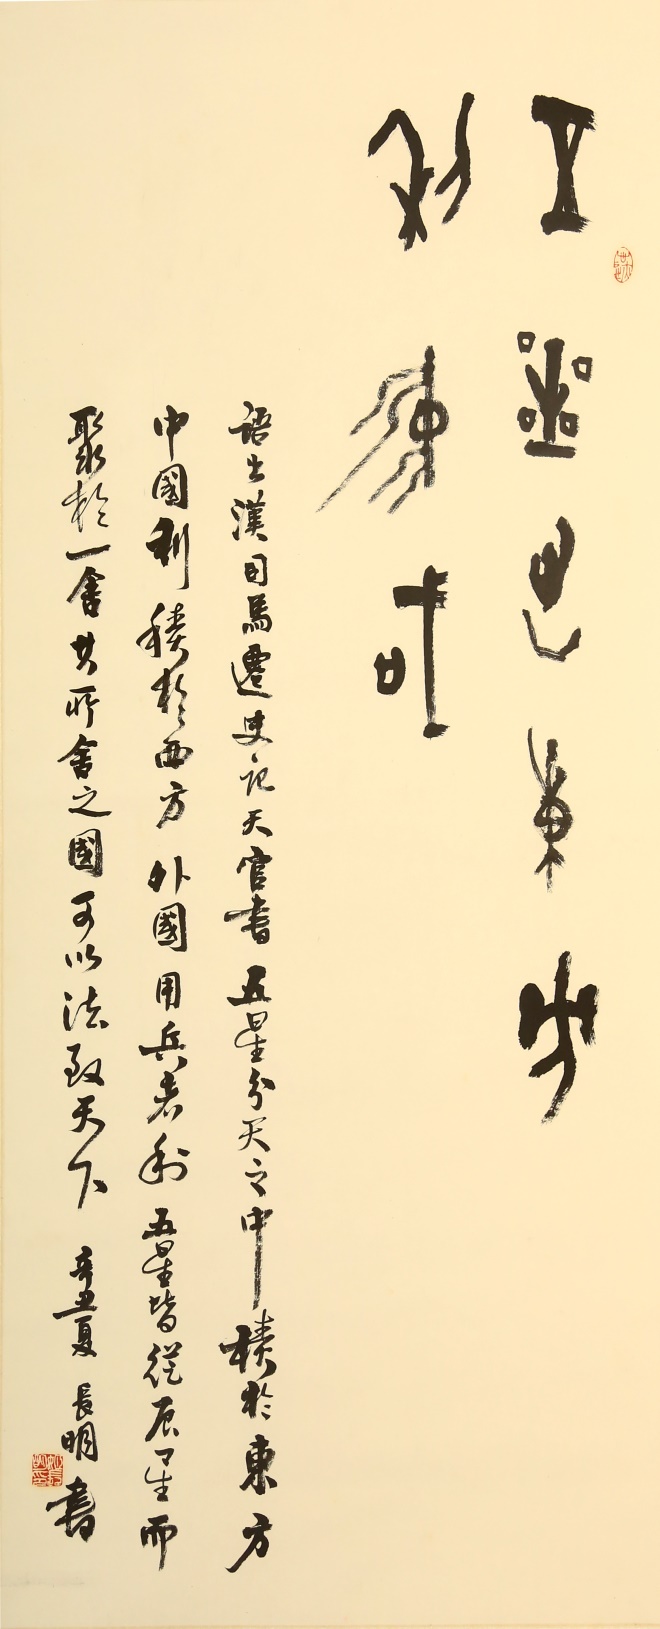 五星出東方
利中國
語出漢司馬遷史記天官書五星分天之中積於東方
中國利積於西方外國用兵者利五星皆從辰星而
聚於一舍其所舍之國可以法致天下 辛丑夏 長明書